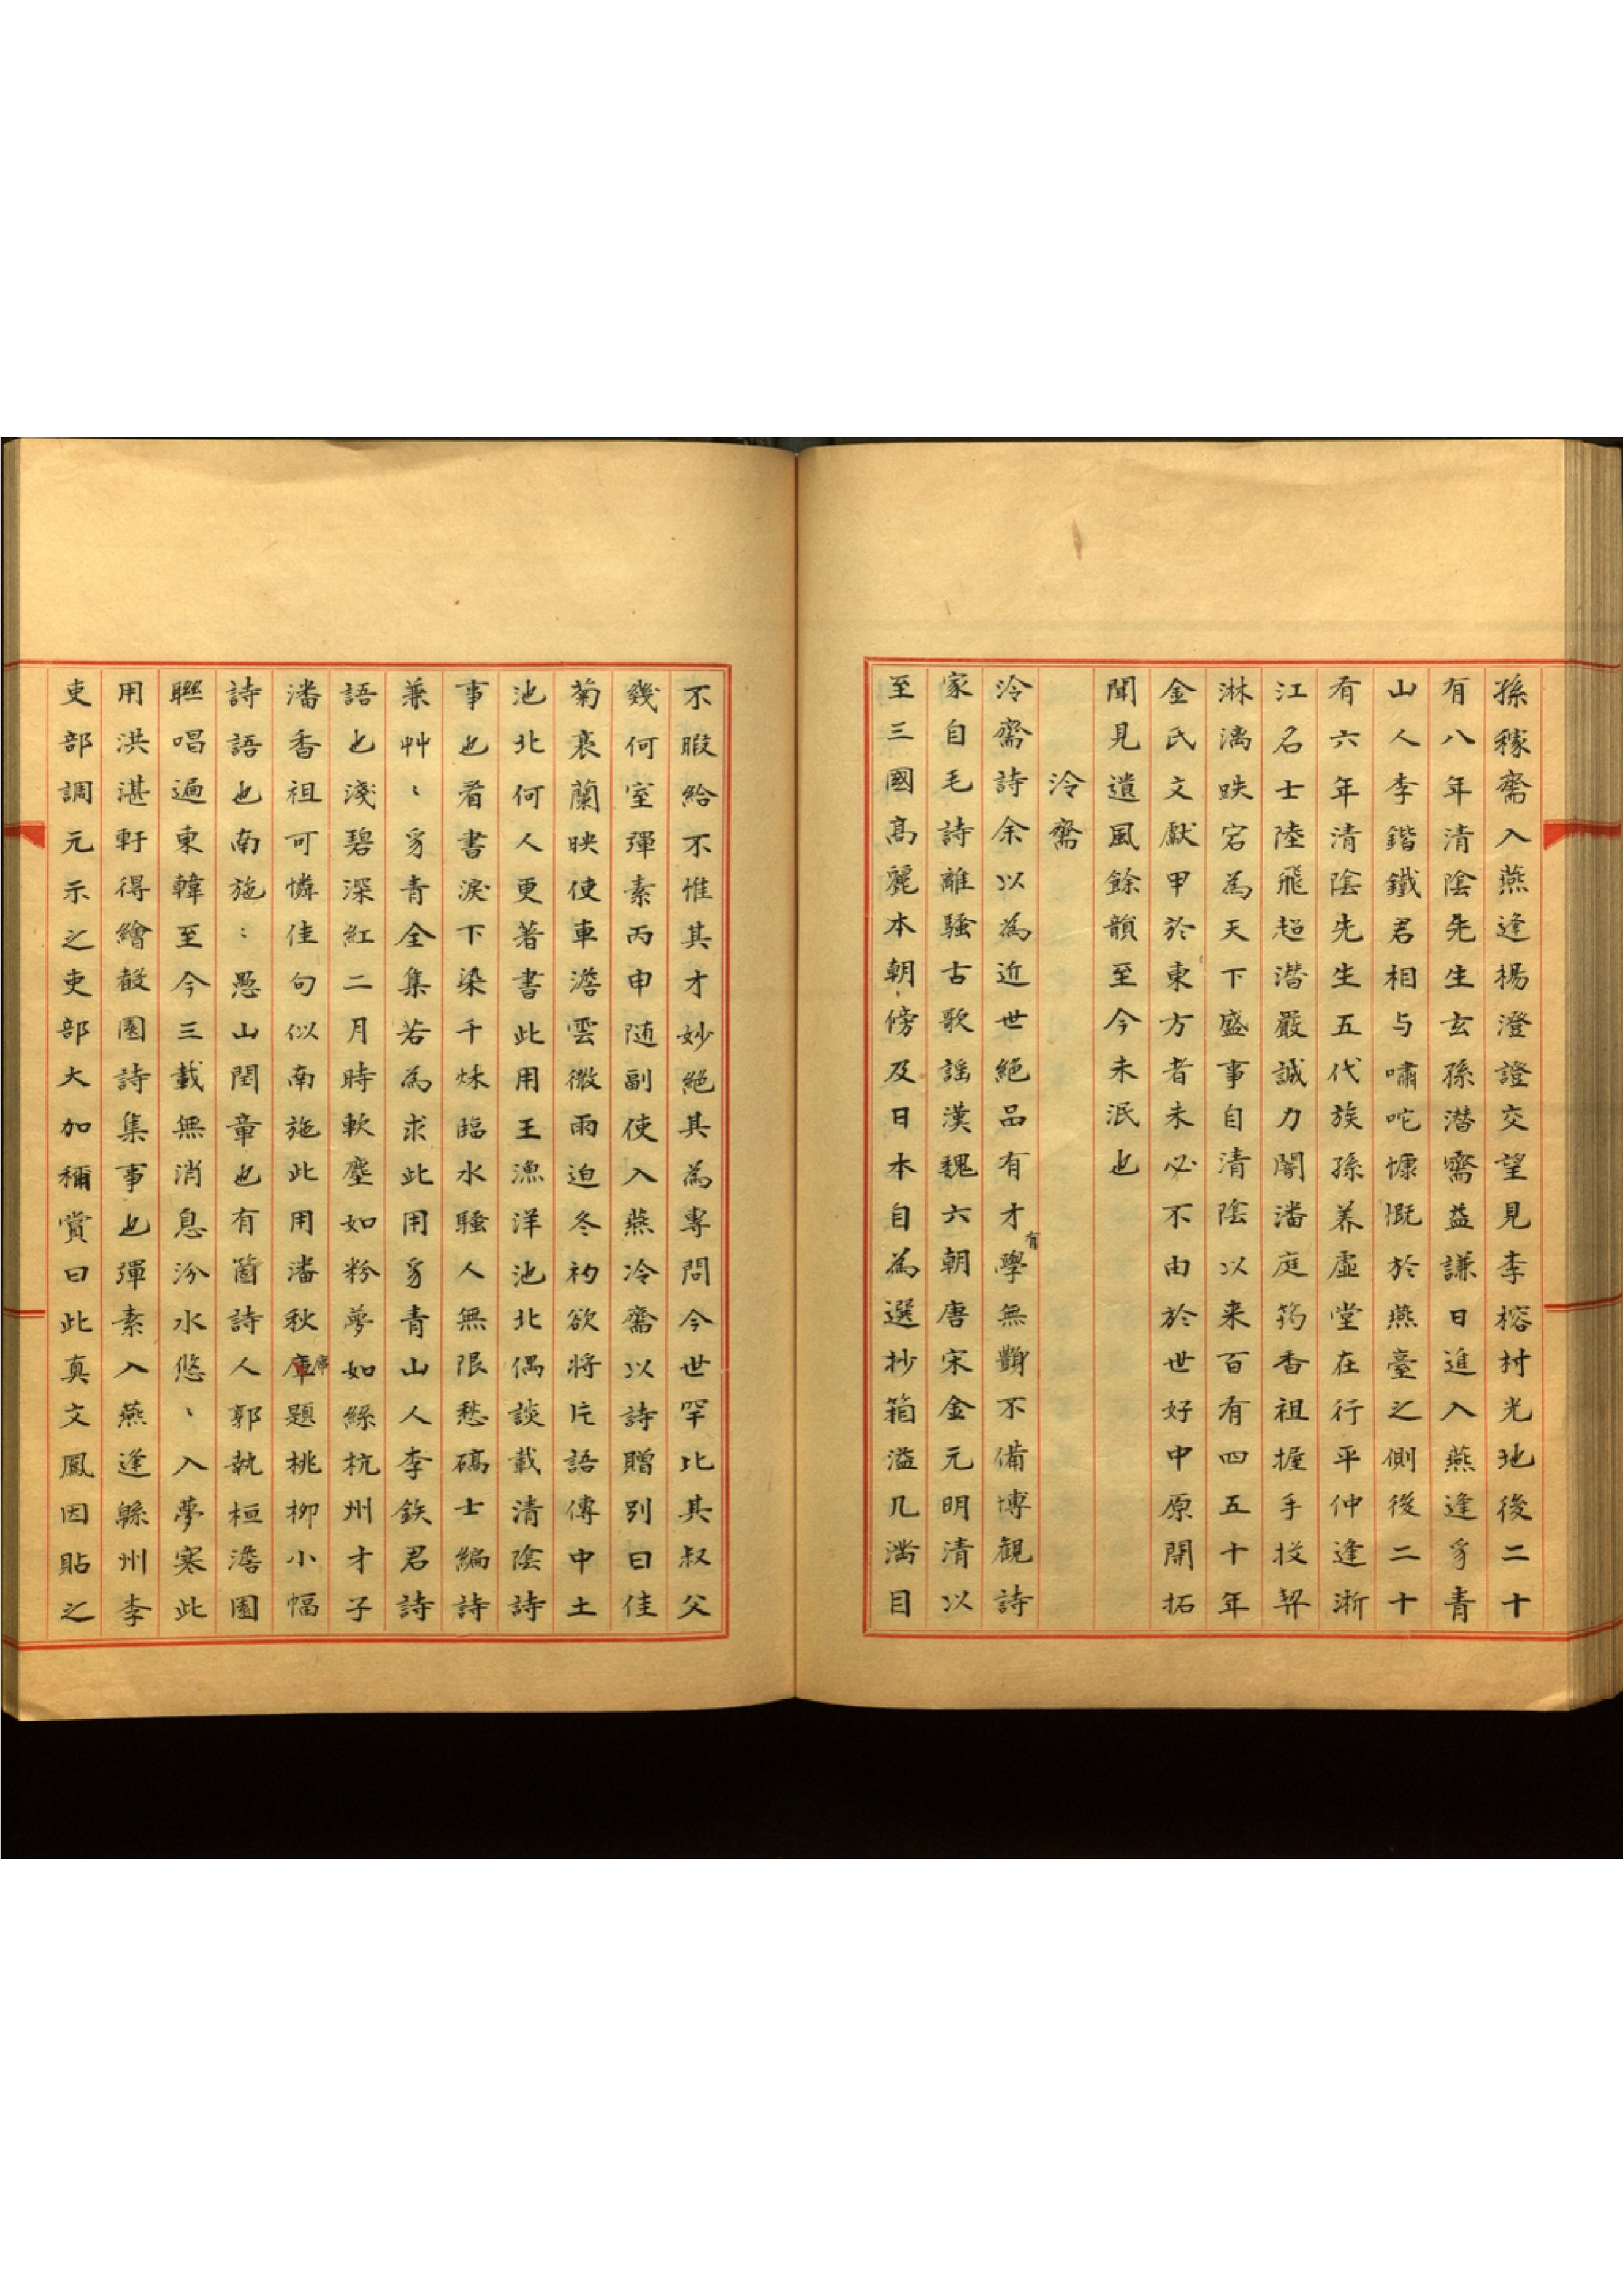 孫稼齋入燕逢楊澄證交望見李榕村光地後二十
有八年清陰先生玄孫潜齋益謙日進入燕逢豸青
山人李鍇鐵君相与嘯咜慷慨於燕臺之側後二十
有六年清陰先生五代族孫养虛堂在行平仲逢浙
江名士陸飛起潜嚴誠力闇潘庭筠香祖握手投契
淋漓跌宕為天下盛事自清陰以来百有四五十年
金氏文獻甲於東方者未必不由於世好中原開拓
聞見遺風餘韻至今未泯也
泠齋
泠齋詩余以為近世絶品有才有學無黰不備博觀詩
家自毛詩離騷古歌謠漢魏六朝唐宋金元明清以
至三國高麗本朝傍及日本自為選抄箱溢几滿目
不暇給不惟其才妙絕其為專問今世罕比其叔父
幾何室彈素丙申随副使入燕冷齋以詩贈別曰佳
菊衰蘭映使車澹雲微雨迫冬初欲將片語傳中土
池北何人更著書此用王漁洋池北偶談載清陰詩
事也看書淚下染千秌臨水騷人無限愁碻士編詩
兼艸〻豸青全集若為求此用豸青山人李鉄君詩
語也淺碧深紅二月時軟塵如粉夢如絲杭州才子
潘香祖可憐佳句似南施此用潘秋庫𢈪題桃柳小幅
詩語也南施〻愚山閏章也有箇詩人郭執桓澹園
聯唱遍東韓至今三載無消息汾水悠〻入夢寒此
用洪湛軒得繪聲園詩集事也彈素入燕逢緜州李
吏部調元示之吏部大加稱賞曰此真文鳳因貼之